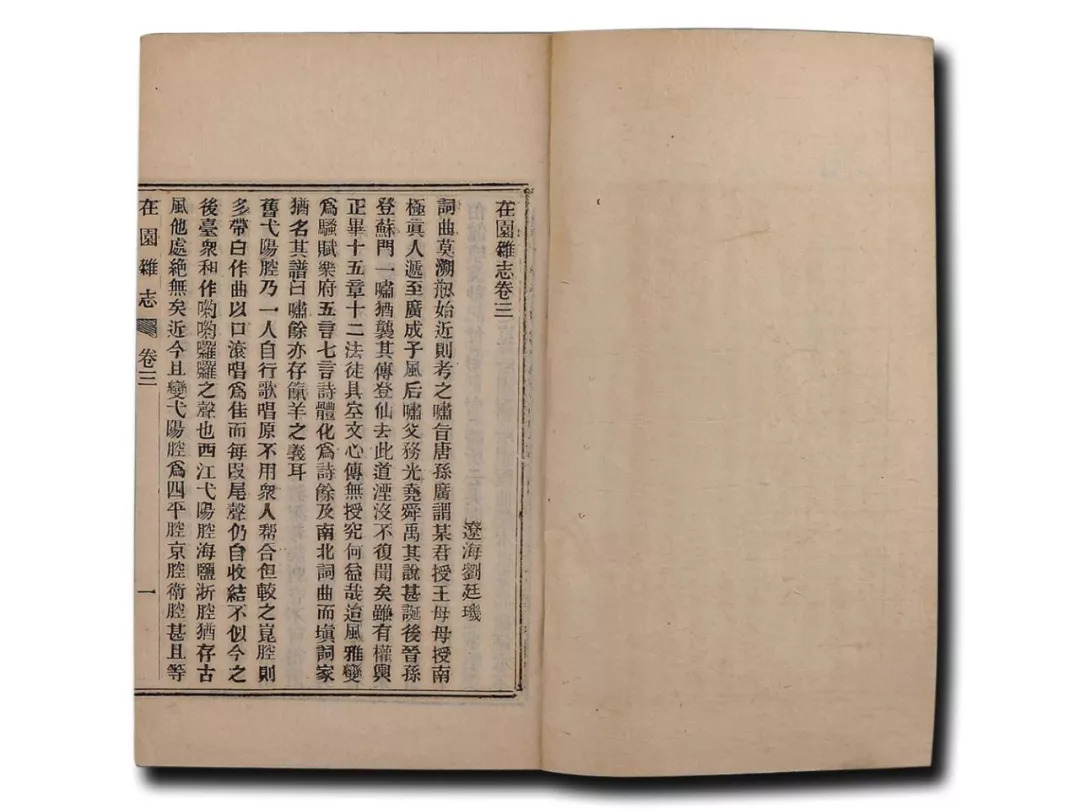 在園雜志卷三
遼海劉廷璣
詞曲莫溯厥始近則考之嘯旨唐孫廣謂某君授王母母授南
極眞人遞至廣成子風后嘯父務光堯舜禹其說甚誕後晉孫
登蘇門一嘯猶襲其傳登仙去此道湮沒不復聞矣雖有權輿
正畢十五章十二法徒具空文心傳無授究何益哉迨風雅變
爲騷賦樂府五言七言詩體化爲詩餘及南北詞曲而塡詞家
猶名其譜曰嘯餘亦存餼羊之義耳
舊弋陽腔乃一人自行歌唱原不用衆人幫合但較之崑腔則
多帶白作曲以口滾唱爲佳而每段尾聲仍自收結不似今之
後臺衆和作喲喲囉囉之聲也西江弋陽腔海鹽浙腔猶存古
風他處絶無矣近今且變弋陽腔爲四平腔京腔衛腔甚且等
在園雜志
卷三
一